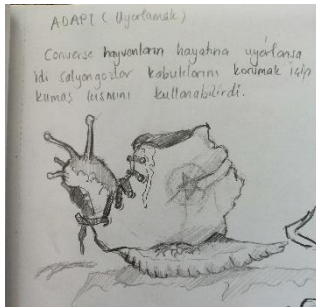 ADAPT (Uyarlamak)
Converse hayvanların hayatına uyarlansa
idi salyangozlar kabuklarını korumak için
kumaş kısmını kullanabilirdi.